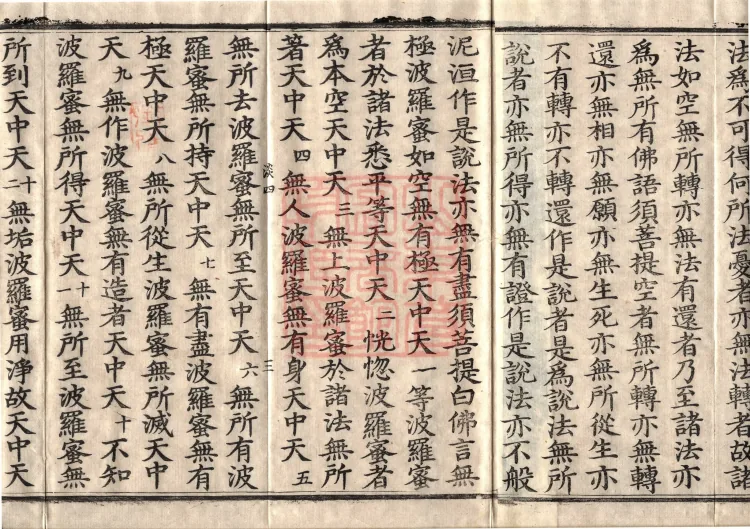 法為不可得何所法憂者亦無法轉者故諸
法如空無所轉亦無法有還者乃至諸法亦
為無所有佛語須菩提空者無所轉亦無轉
還亦無相亦無願亦無生死亦無所從生亦
不有轉亦不轉還作是說者是為說法無所
說者亦無所得亦無有證作是說法亦不般
泥洹作是說法亦無有盡須菩提白佛言無
極波羅蜜如空無有極天中天一等波羅蜜
者於諸法悉平等天中天二恍惚波羅蜜者
為本空天中天三無上波羅蜜於諸法無所
著天中天四無人波羅蜜無有身天中天五
淡四 三
無所去波羅蜜無所至天中天六無所有波
羅蜜無所持天中天七無有盡波羅蜜無有
極天中天八無所從生波羅蜜無所滅天中
天九無作波羅蜜無有造者天中天十不知
波羅蜜無所得天中天十一無所至波羅蜜無
所到天中天十二無垢波羅蜜用淨故天中天